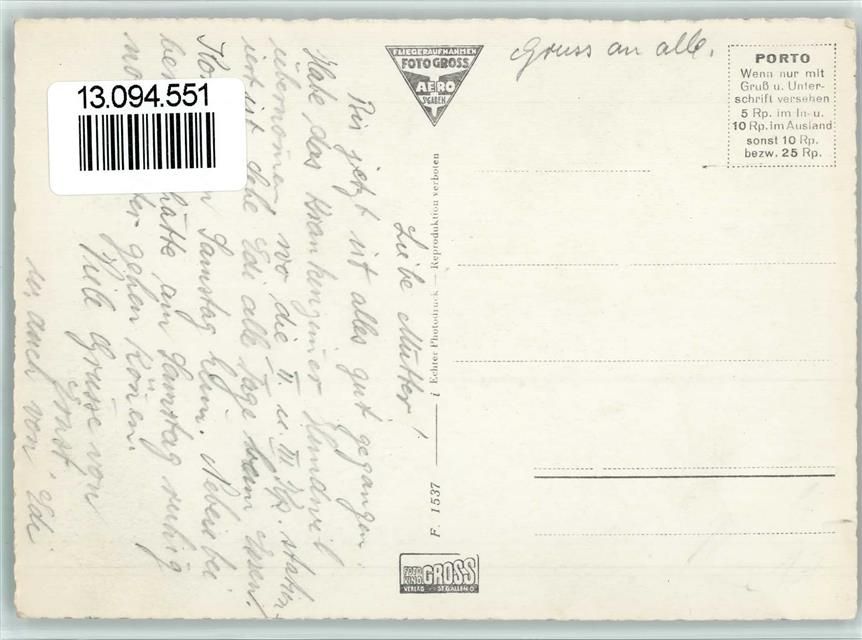 13.094.551
FLIEGERAUFNAHMEN
FOTO GROSS
AERO
ST. GALLEN
Gruss an alle.
PORTO
Wenn nur mit
Gruß u. Unter-
schrift versehen
5 Rp. im In- u.
10 Rp. im Ausland
sonst 10 Rp.
bezw. 25 Rp.
Liebe Mutter!
Bis jetzt ist alles gut gegangen.
Habe das Krankenzimer Hundwil
übernomen, wo die II. u. III Kp. statin
iert ist. Sehe Edi alle Tage beim Essen.
Samstag heim. Nebenbei
hätte am Samstag ruhig
gehen könen.
Viele Grüsse von
Ernst.
u. auch von Edi
F. 1537 Echter Photodruck — Reproduktion verboten
FOTO
GROSS
VERLAG ST. GALLEN O